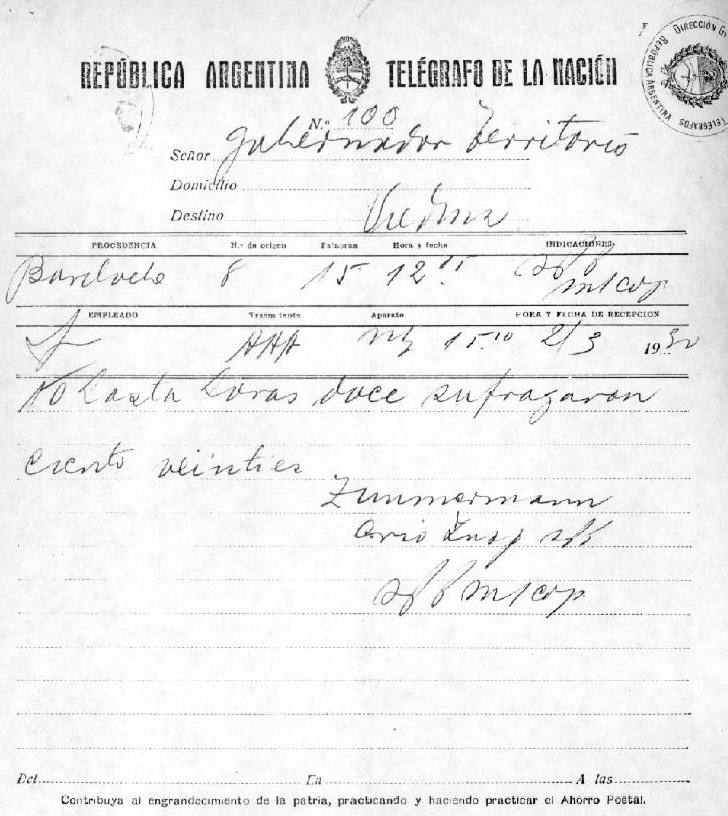 REPÚBLICA ARGENTINA TELÉGRAFO DE LA NACIÓN
DIRECCIÓN
REPÚBLICA ARGENTINA
TELÉGRAFOS
N.º 100
Señor Gobernador Territorio
Domicilio
Destino Viedma
PROCEDENCIA N.º de origen Palabras Hora y fecha INDICACIONES
8 15 12.15
EMPLEADO Aparato HORA Y FECHA DE RECEPCION
15.10 2/3 1930
hasta horas doce sufragaron
ciento
Zimmermann
Del En A las
Contribuya al engrandecimiento de la patria, practicando y haciendo practicar el Ahorro Postal.